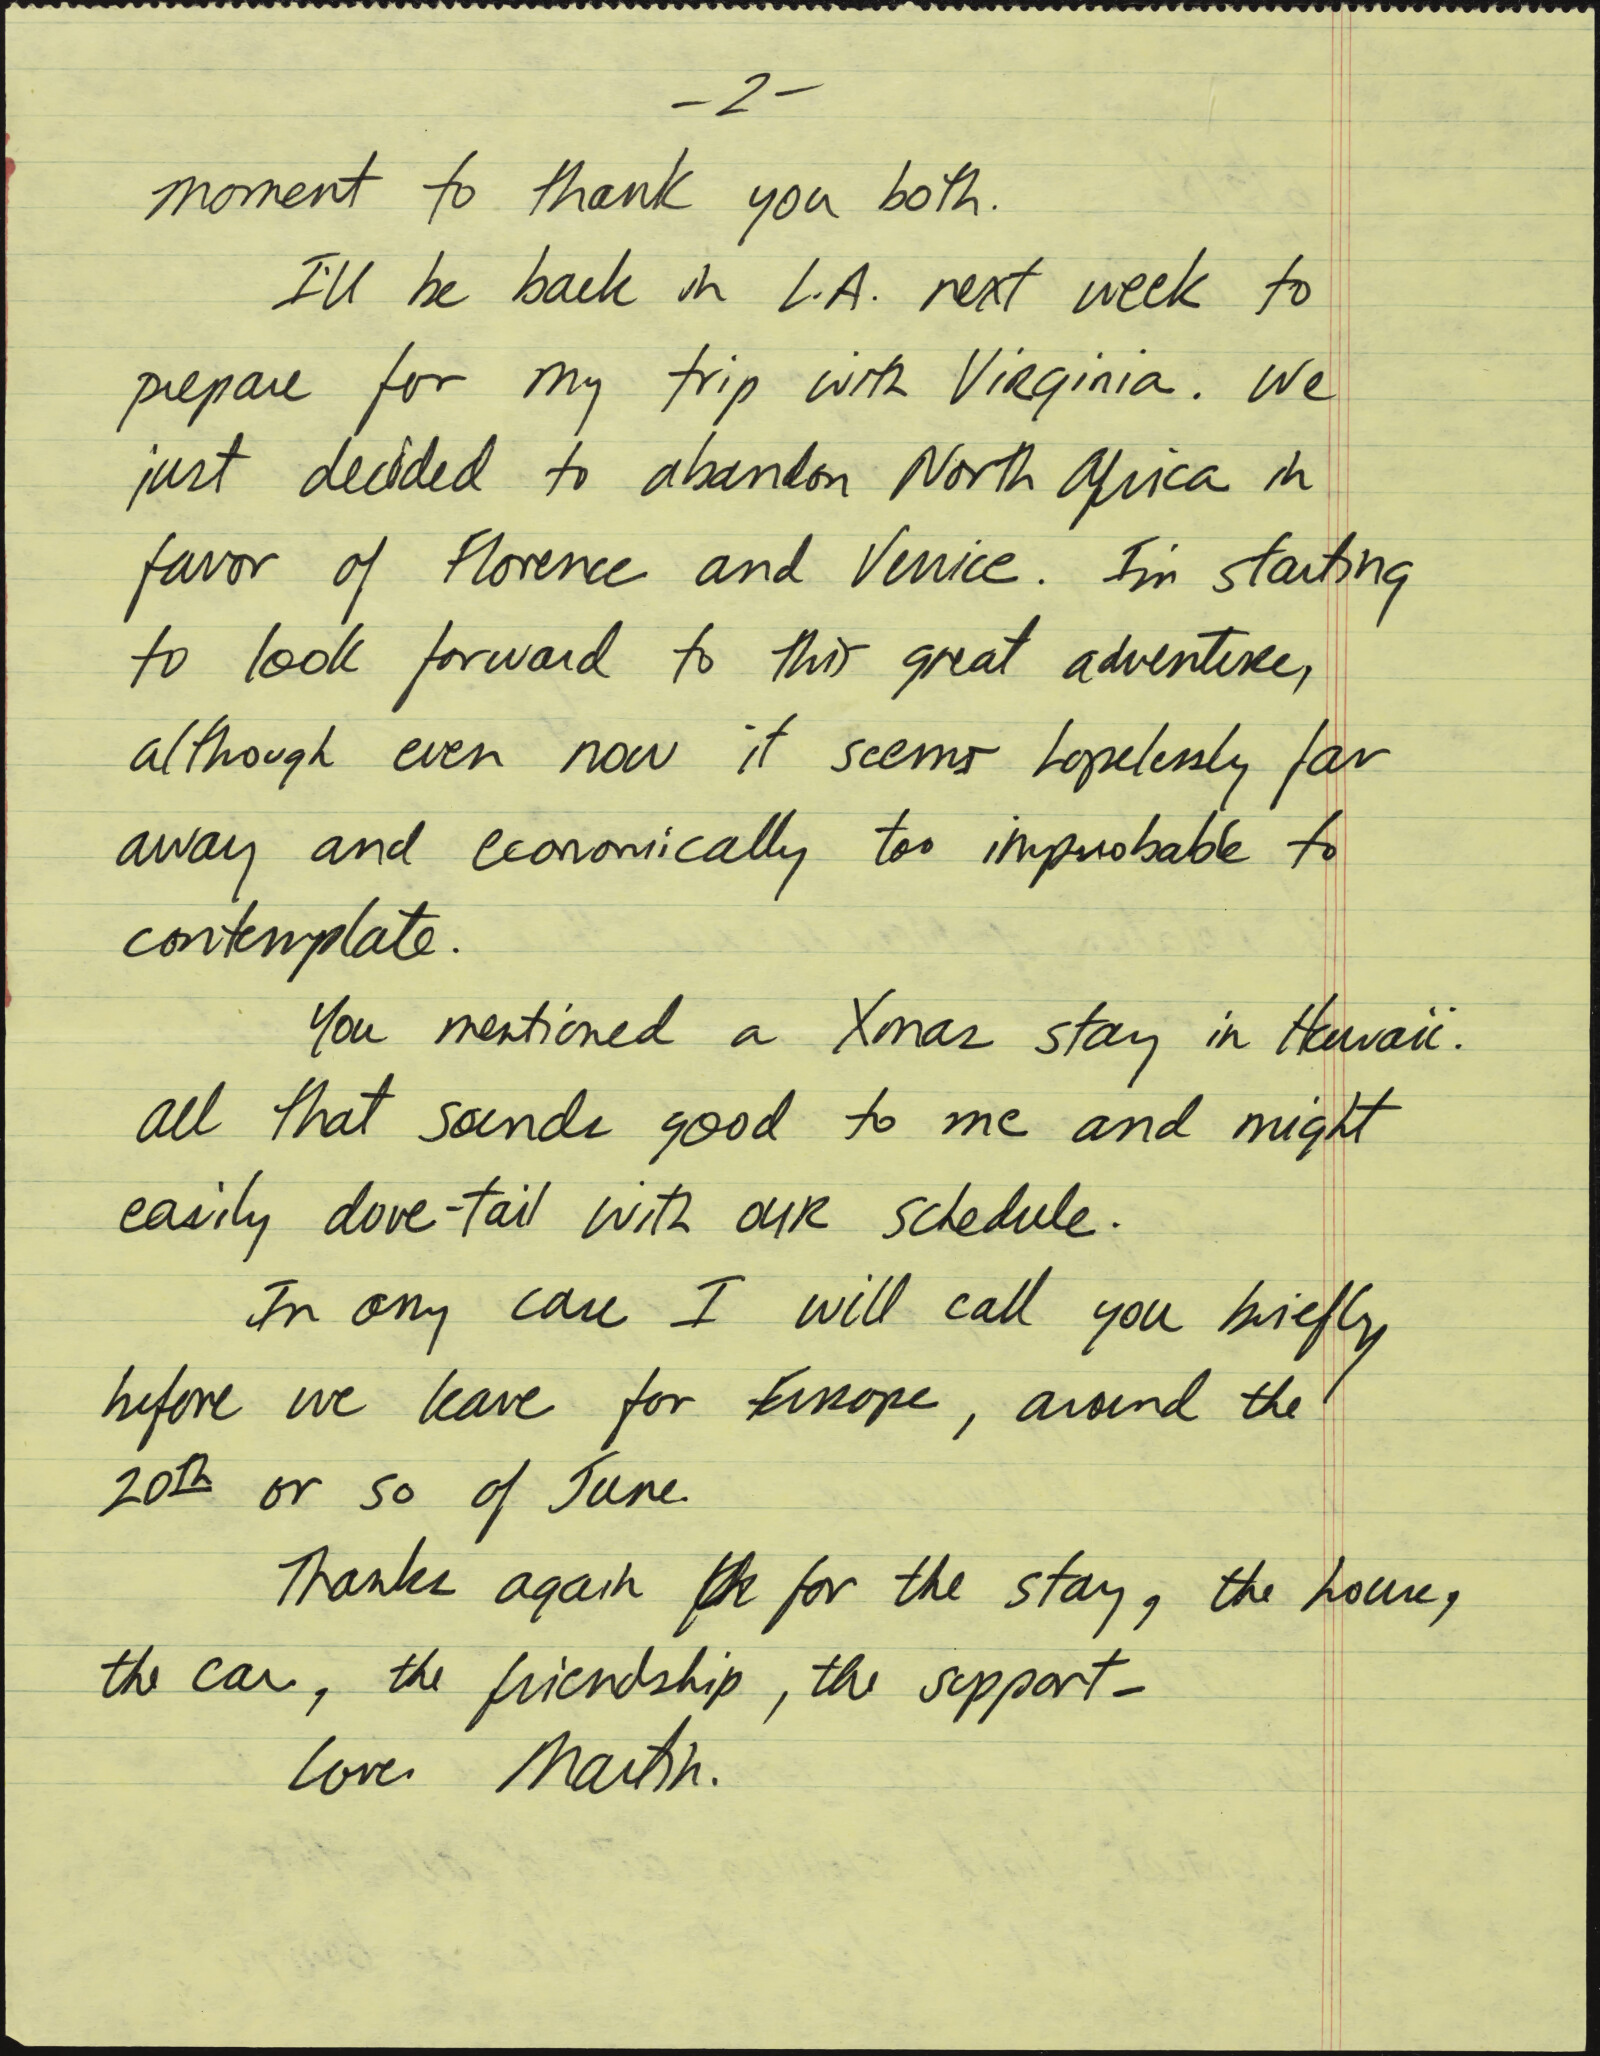 -2-
moment to thank you both.
I'll be back in L.A. next week to
prepare for my trip with Virginia. We
just decided to abandon North Africa in
favor of Florence and Venice. I'm starting
to look forward to this great adventure,
although even now it seems hopelessly far
away and economically too improbable to
contemplate.
You mentioned a Xmas stay in Hawaii.
All that sounds good to me and might
easily dove-tail with our schedule.
In any case I will call you briefly
before we leave for Europe, around the
20th or so of June.
Thanks again for the stay, the house,
the car, the friendship, the support-
Love. Martin.